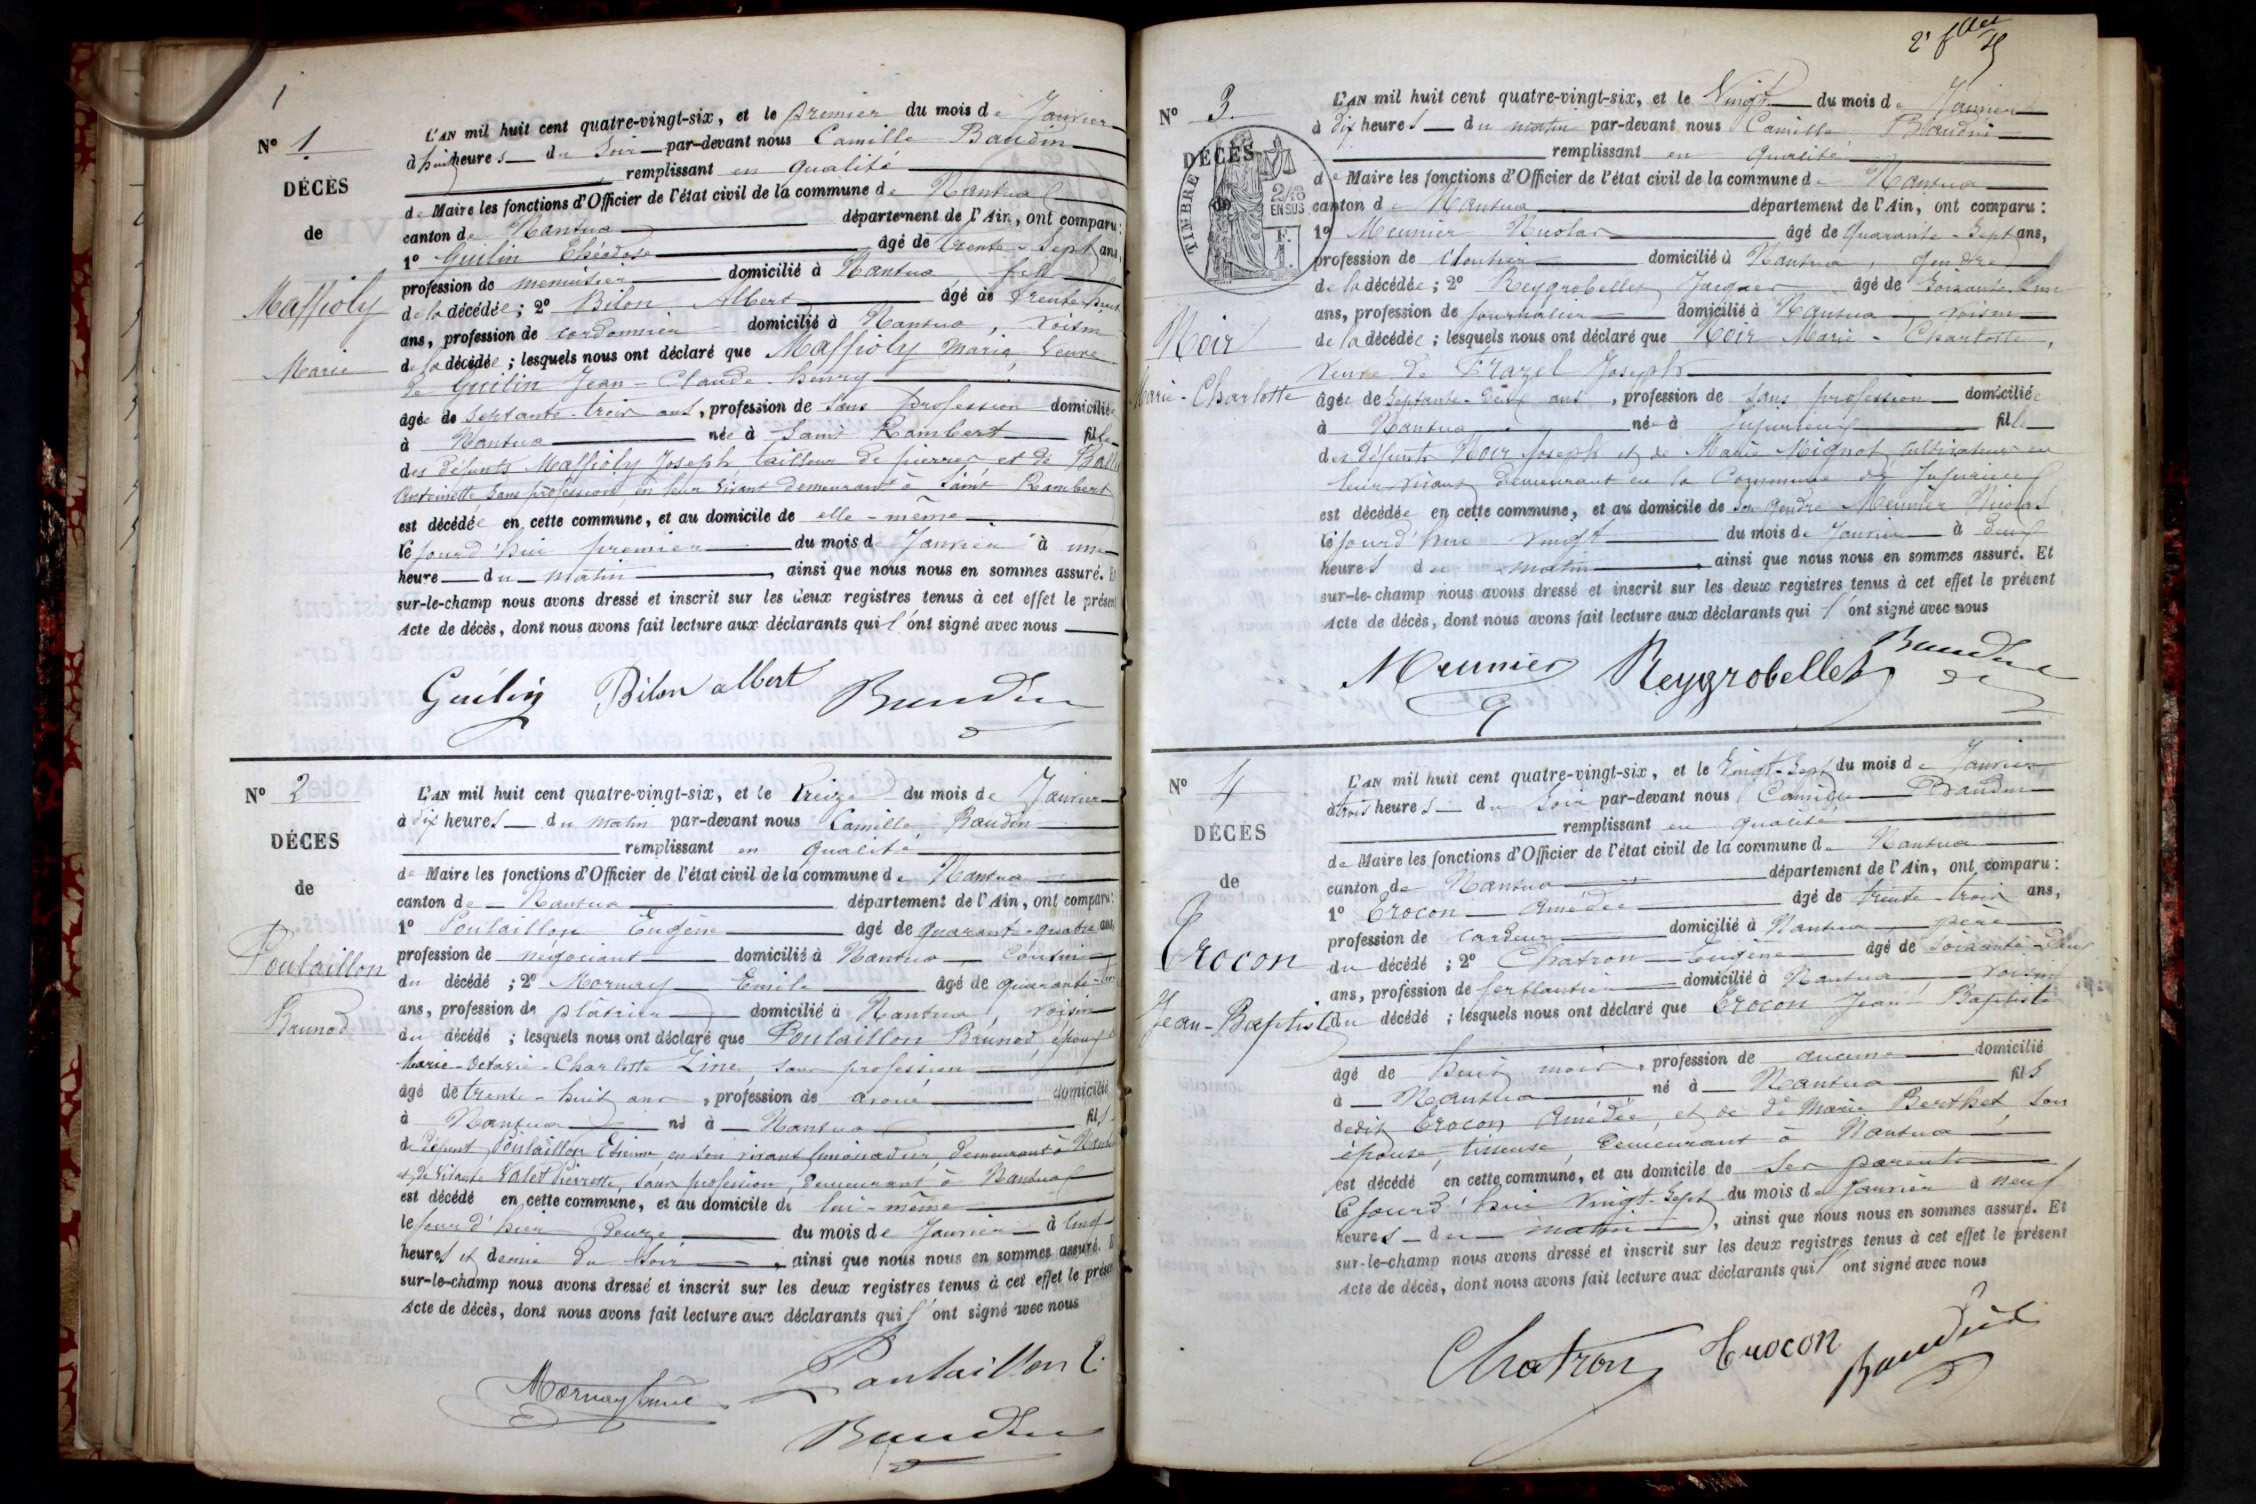 1
N° 1
DÉCÈS
de
Maffioly
Marie
L'AN mil huit cent quatre-vingt-six, et le premier du mois de Janvier
à huit heures du Soir par-devant nous Camille Baudin
remplissant en qualité
de Maire les fonctions d'Officier de l'état civil de la commune de Nantua
canton de Nantua département de l'Ain, ont comparu:
1° Guilin Théodose âgé de trente-Sept ans,
profession de menuisier domicilié à Nantua, fils
de la décédée; 2° Bilon Albert âgé de trente
ans, profession de cordonnier domicilié à Nantua, voisin
de la décédée; lesquels nous ont déclaré que Maffioly Marie, Veuve
de Guilin Jean-Claude-henry
âgée de Septante-trois ans, profession de sans profession domiciliée
à Nantua née à Saint Rambert fille
des défunts Maffioly Joseph tailleur de pierres et de
Antoinette sans profession en leur vivant demeurant à Saint Rambert
est décédée en cette commune, et au domicile de elle-même
le jourd'hui premier du mois de Janvier à une
heure du matin, ainsi que nous nous en sommes assuré. Et
sur-le-champ nous avons dressé et inscrit sur les deux registres tenus à cet effet le présent
Acte de décès, dont nous avons fait lecture aux déclarants qui l'ont signé avec nous
Guilin Bilon albert Baudin
N° 2
DÉCÈS
de
Poulaillon
Brunod
L'AN mil huit cent quatre-vingt-six, et le treize du mois de Janvier
à dix heures du matin par-devant nous Camille Baudin
remplissant en qualité
de Maire les fonctions d'Officier de l'état civil de la commune de Nantua
canton de Nantua département de l'Ain, ont comparu:
1° Poulaillon Eugène âgé de quarante-quatre ans,
profession de négociant domicilié à Nantua, Cousin
du décédé; 2° Mornay Emile âgé de quarante
ans, profession de plâtrier domicilié à Nantua, voisin
du décédé; lesquels nous ont déclaré que Poulaillon Brunod, époux
Marie-Octavie-Charlotte Zine, sans profession
âgé de trente-huit ans, profession de avoué domicilié
à Nantua né à Nantua fils
de défunt Poulaillon Etienne, en son vivant limonadier, demeurant à Nantua
et de Pierrette, sans profession, demeurant à Nantua
est décédé en cette commune, et au domicile de lui-même
le jour d'hier douze du mois de Janvier à
heures et demie du Soir, ainsi que nous nous en sommes assuré. Et
sur-le-champ nous avons dressé et inscrit sur les deux registres tenus à cet effet le présent
Acte de décès, dont nous avons fait lecture aux déclarants qui l'ont signé avec nous
Mornay Emile Poulaillon E.
Baudin
N° 3
DÉCÈS
de
TIMBRE
2/10
EN SUS
Noir
Marie-Charlotte
L'AN mil huit cent quatre-vingt-six, et le Vingt du mois de Janvier
à dix heures du matin par-devant nous Camille Baudin
remplissant en qualité
de Maire les fonctions d'Officier de l'état civil de la commune de Nantua
canton de Nantua département de l'Ain, ont comparu:
1° Meunier Nicolas âgé de quarante-Sept ans,
profession de cloutier domicilié à Nantua, gendre
de la décédée; 2° Reygrobellet Jacques âgé de Soixante
ans, profession de journalier domicilié à Nantua voisin
de la décédée; lesquels nous ont déclaré que Noir Marie-Charlotte,
veuve de Joseph
âgée de Septante-Deux ans, profession de sans profession domiciliée
à Nantua née à Jujurieux fille
des défunts Noir Joseph et de Marie Mignot, cultivateurs en
leur vivant demeurant en la Commune de Jujurieux
est décédée en cette commune, et au domicile de son gendre Meunier Nicolas
le jourd'hui vingt du mois de Janvier à deux
heures du matin, ainsi que nous nous en sommes assuré. Et
sur-le-champ nous avons dressé et inscrit sur les deux registres tenus à cet effet le présent
Acte de décès, dont nous avons fait lecture aux déclarants qui l'ont signé avec nous
Meunier Reygrobellet Baudin
N° 4
DÉCÈS
de
Crocon
Jean-Baptiste
L'AN mil huit cent quatre-vingt-six, et le Vingt-Sept du mois de Janvier
à trois heures du Soir par-devant nous Camille Baudin
remplissant en qualité
de Maire les fonctions d'Officier de l'état civil de la commune de Nantua
canton de Nantua département de l'Ain, ont comparu:
1° Crocon Amédée âgé de trente-trois ans,
profession de cardeur domicilié à Nantua père
du décédé; 2° Chatron Eugène âgé de Soixante-Deux
ans, profession de ferblantier domicilié à Nantua voisin
du décédé; lesquels nous ont déclaré que Crocon Jean Baptiste
âgé de huit mois, profession de aucune domicilié
à Nantua né à Nantua fils
dudit Crocon Amédée, et de Marie Berthet, son
épouse, tisseuse, demeurant à Nantua
est décédé en cette commune, et au domicile de ses parents
le jourd'hui vingt-Sept du mois de Janvier à neuf
heures du matin, ainsi que nous nous en sommes assuré. Et
sur-le-champ nous avons dressé et inscrit sur les deux registres tenus à cet effet le présent
Acte de décès, dont nous avons fait lecture aux déclarants qui l'ont signé avec nous
Chatron Crocon Baudin